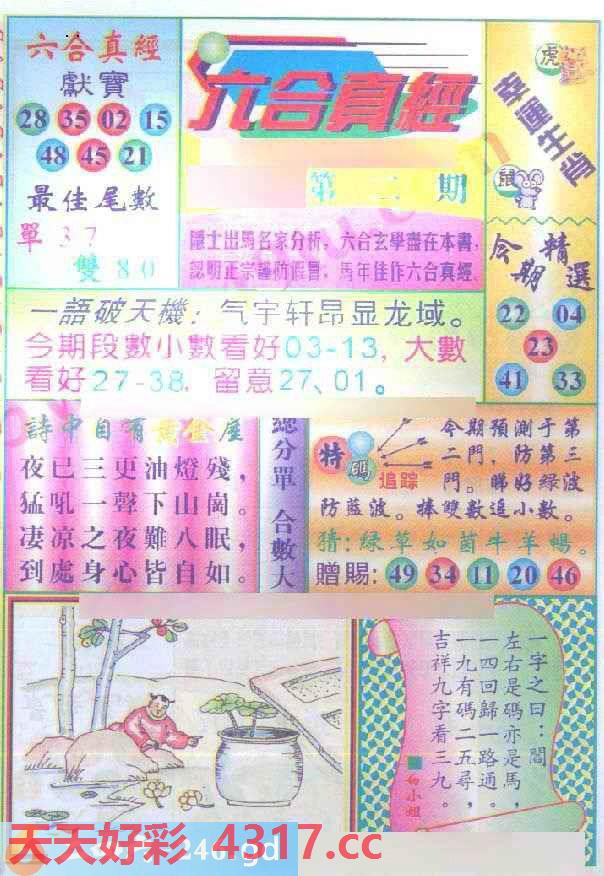 六合真經
獻寶
28 35 02 15
48 45 21
最佳尾數
單37
雙80
六合真經
第二期
隱士出馬名家分析，六合玄學盡在本書，
認明正宗謹防假冒，馬年佳作六合真經
虎
幸運生肖
鼠
今期精選
22 04
23
41 33
一語破天機：气宇轩昂显龙域。
今期段數小數看好03-13，大數
看好27-38，留意27、01。
詩中自有黃金屋
夜已三更油燈殘，
猛吼一聲下山崗。
凄凉之夜難入眠，
到處身心皆自如。
總分單 合數大
特碼
追踪
今期預測于第
二門，防第三
門。睇好綠波
防藍波。捧雙數追小數。
猜：綠草如茵牛羊暢。
贈賜：49 34 11 20 46
一字之曰：閶
左右是碼亦是馬，
一四回歸一路通。
一九有碼二五尋，
吉祥九字看三九。
小姐
天天好彩 4317.cc
246.gd